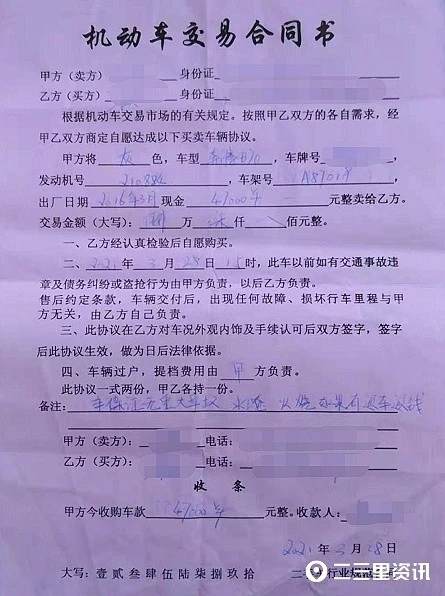 机动车交易合同书
甲方（卖方） 身份证
乙方（买方） 身份证
根据机动车交易市场的有关规定。按照甲乙双方的各自需求，经
甲乙双方商定自愿达成以下买卖车辆协议。
甲方将 灰 色，车型 奔腾B70，车牌号
发动机号 车架号
出厂日期 2016年3月 现金 47000年 元整卖给乙方。
交易金额（大写）： 万 仟 佰元整。
一、乙方经认真检验后自愿购买。
二、2021年3月28日15时，此车以前如有交通事故违
章及债务纠纷或盗抢行为由甲方负责，以后乙方负责。
售后约定条款，车辆交付后，出现任何故障、损坏行车里程与甲
方无关，由乙方自己负责。
三、此协议在乙方对车况外观内饰及手续认可后双方签字，签字
后此协议生效，做为日后法律依据。
四、车辆过户，提档费用由 甲 方负责。
此协议一式两份，甲乙各持一份。
备注： 车保证无重大事故 水淹 火烧 如果有退车退钱
甲方（卖方）： 电话：
乙方（买方）： 电话：
收 条
甲方今收购车款 47000 元整。收款人：
2021年3月28日
大写：壹贰叁肆伍陆柒捌玖拾
行业规范
二三里资讯